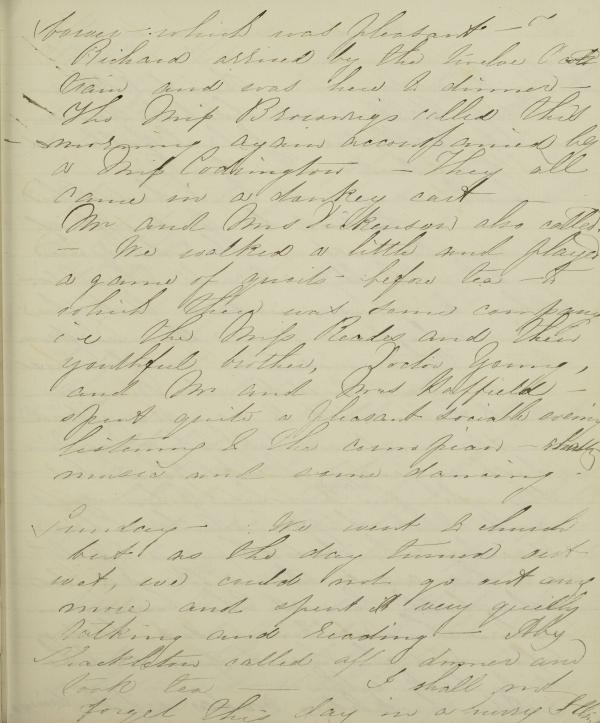 which was pleasant —
Richard arrived by the twelve O'clock
train and was here to dinner —
The Miss Brownrigs called this
morning again accompanied by
a Miss Codrington — They all
came in a donkey cart —
Mr and Mrs Dickenson also called
— We walked a little and played
a game of quoits before tea — to
which there was some company
i.e the Miss Reades and their
youthful brother, Doctor Young,
and Mr and Mrs Hatfield —
spent quite a pleasant sociable evening
listening to the
music and some dancing .
Sunday — We went to church
but as the day turned out
wet, we could not go out any
more and spent it very quietly
talking and reading — Abby
Shackleton called aft dinner and
took tea — I shall not
forget this day in a hurry